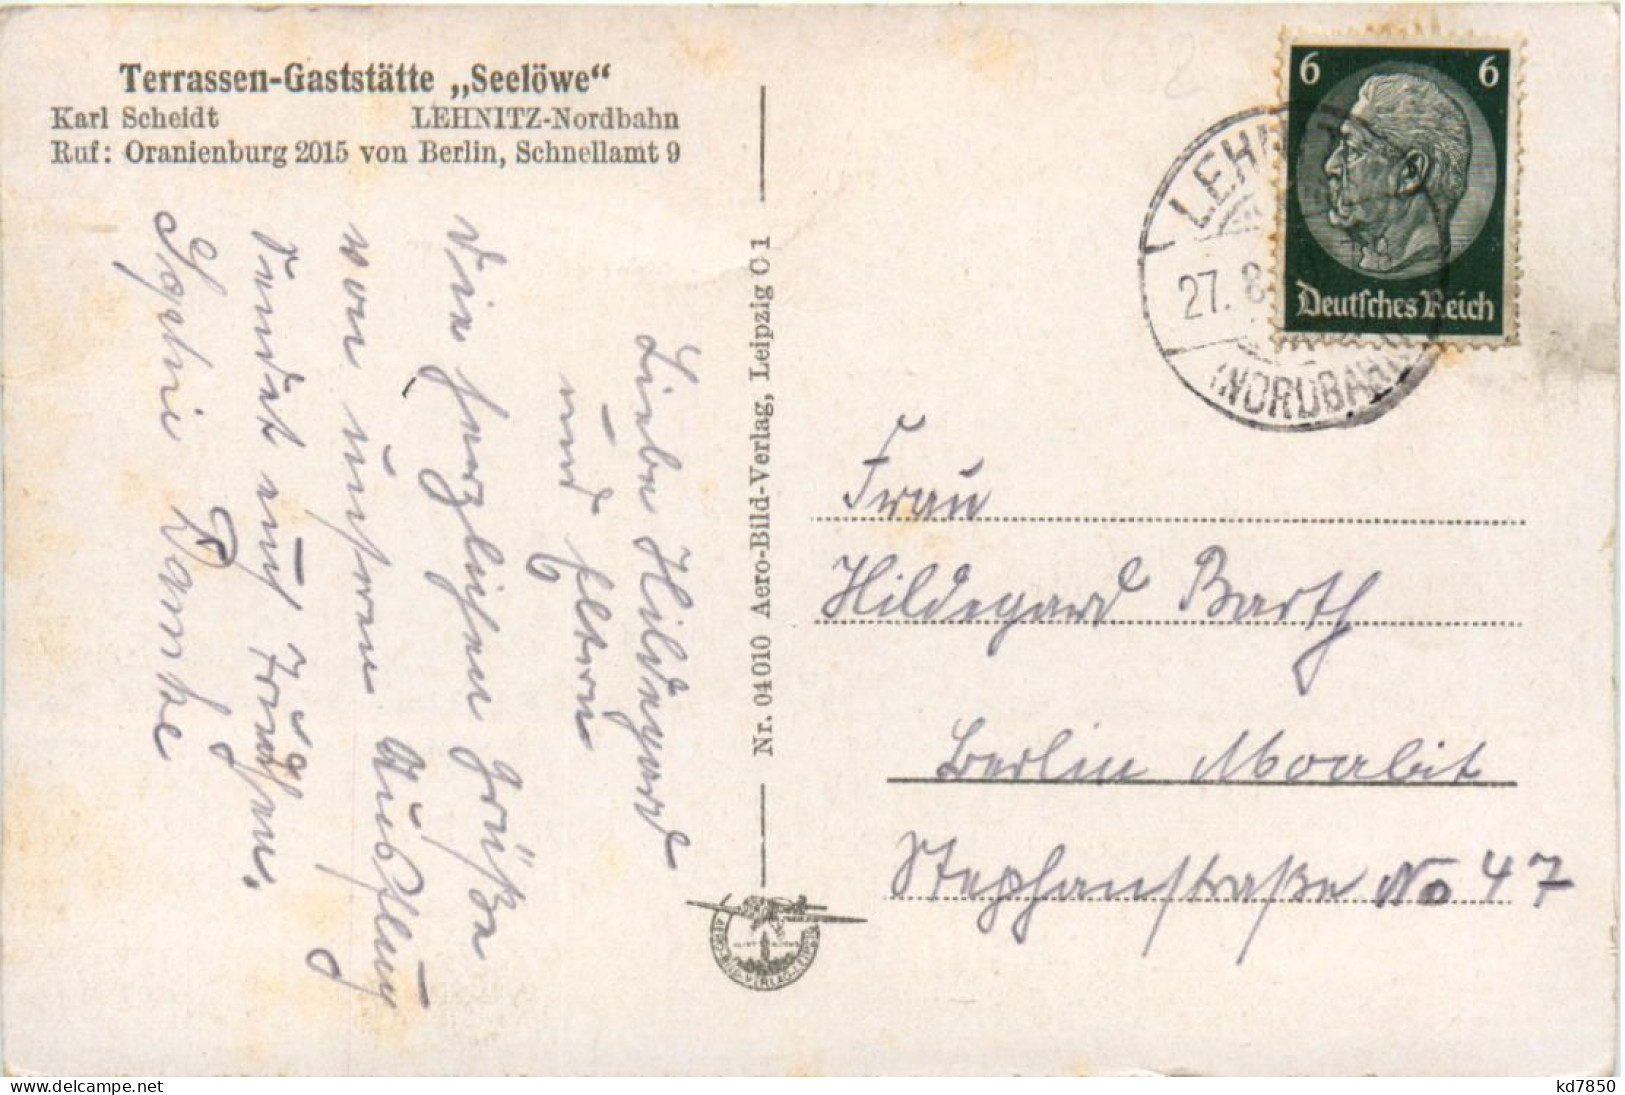 Terrassen-Gaststätte „Seelöwe“
Karl Scheidt LEHNITZ-Nordbahn
Ruf: Oranienburg 2015 von Berlin, Schnellamt 9
Liebe Hildegard
und Eltern
Die herzlichen Grüße
von unsren Ausflug
sendet euch
Sophie
Nr. 04010 Aero-Bild-Verlag, Leipzig C 1
AERO-BILD-VERLAG-LEIPZIG
6 6
Deutsches Reich
LEHNITZ
27. 8.
(NORDBAHN)
Frau
Hildegard Barth
Berlin Moabit
Stephanstraße No 47
www.delcampe.net
kd7850